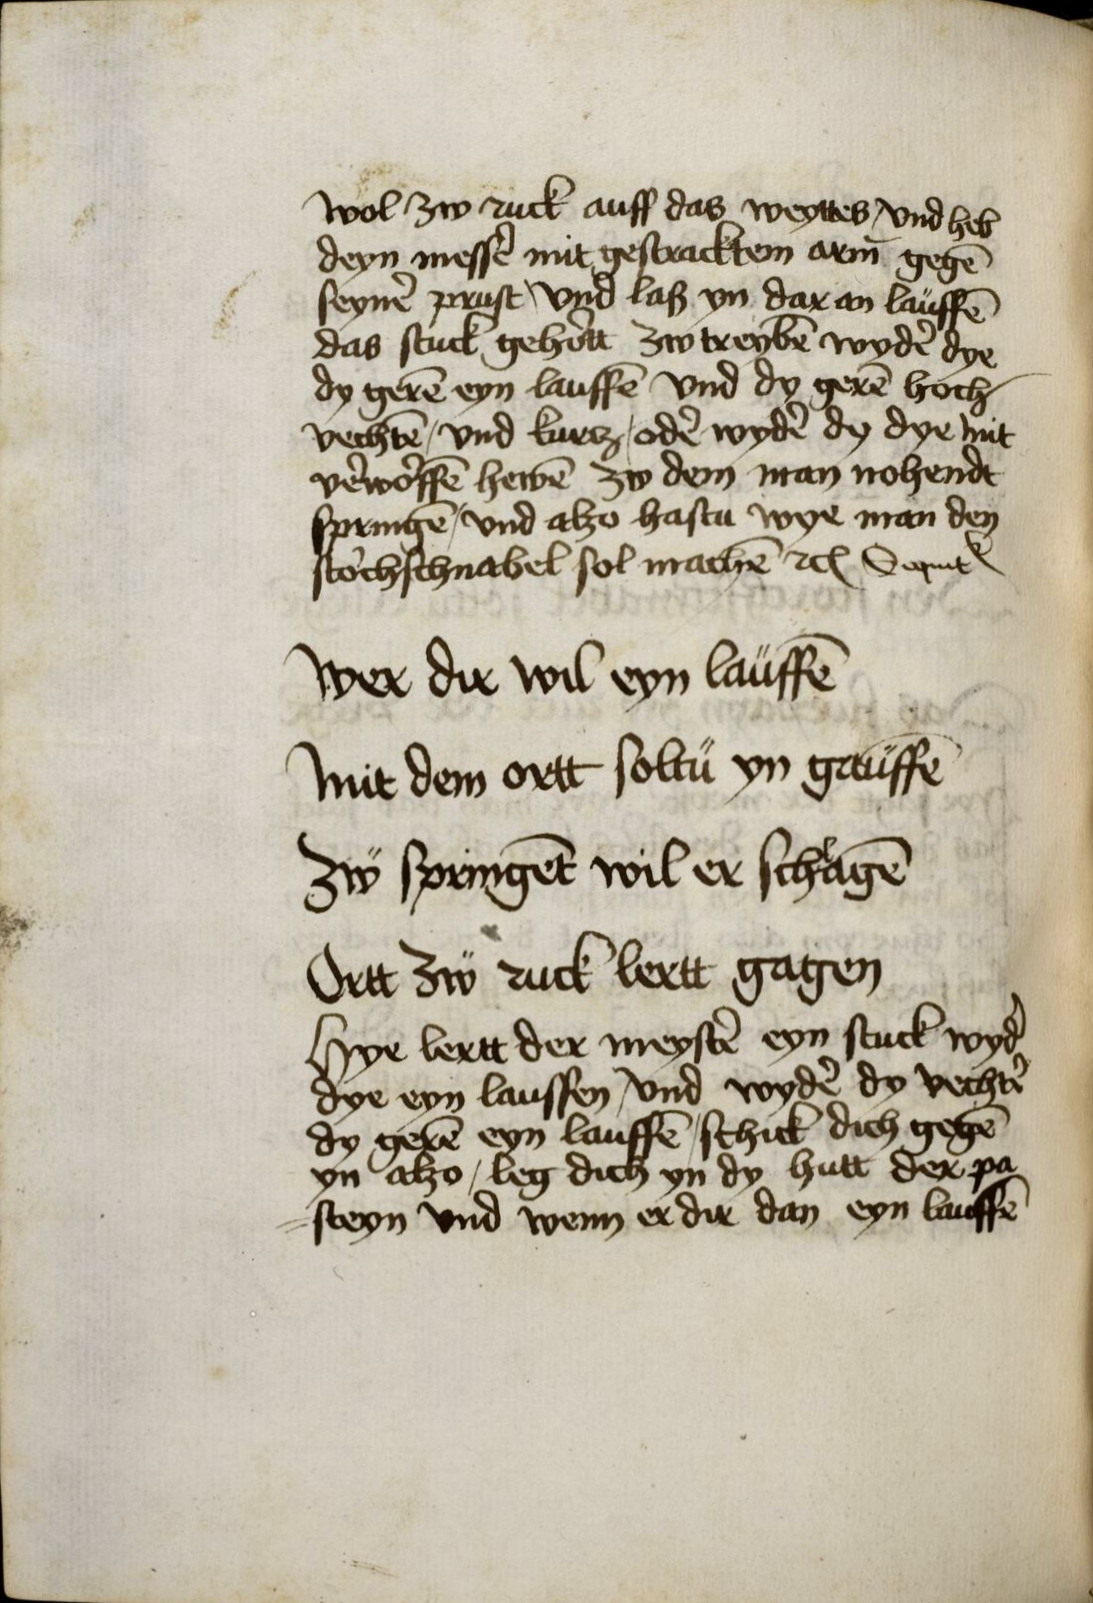 wol zw ruck auff das weyttes / vnd heb
deyn messẽ mit gestracktem arm̄ gegē
seynẽ prust / vnd laß yn dar an lauffē
das stuck gehȯ̈tt zw treybē wydẽ dye
dy gerē eyn lauffē vnd dy gerē hoch
vechtē / vnd kurcz / odẽ wydẽ dy dye mit
vẽwoͤrffē hewē zw dem man nohendt
springē / vnd alzo hastu wye man den
storchschnabel sol machē rc̃
Wer dir wil eyn lauffē
Mit dem ortt soltu yn gauffē
Zẅ springēt wil er schlagē
Ortt zẅ ruck lertt gagen
Hye lertt der meystẽ eyn stuck wydẽ
dye eyn lauffen / vnd wydẽ dy vechtẽ
dy gerē eyn lauffē / schick dich gegē
yn alzo / leg dich yn dy hutt der pa
=steyn vnd wenn er dir dan eyn lauffē